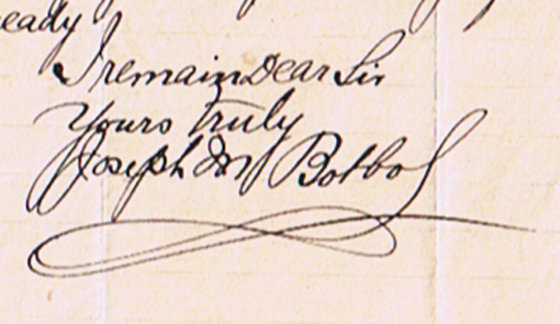 eady
I remain Dear Sir
Yours truly
Joseph M Botbol